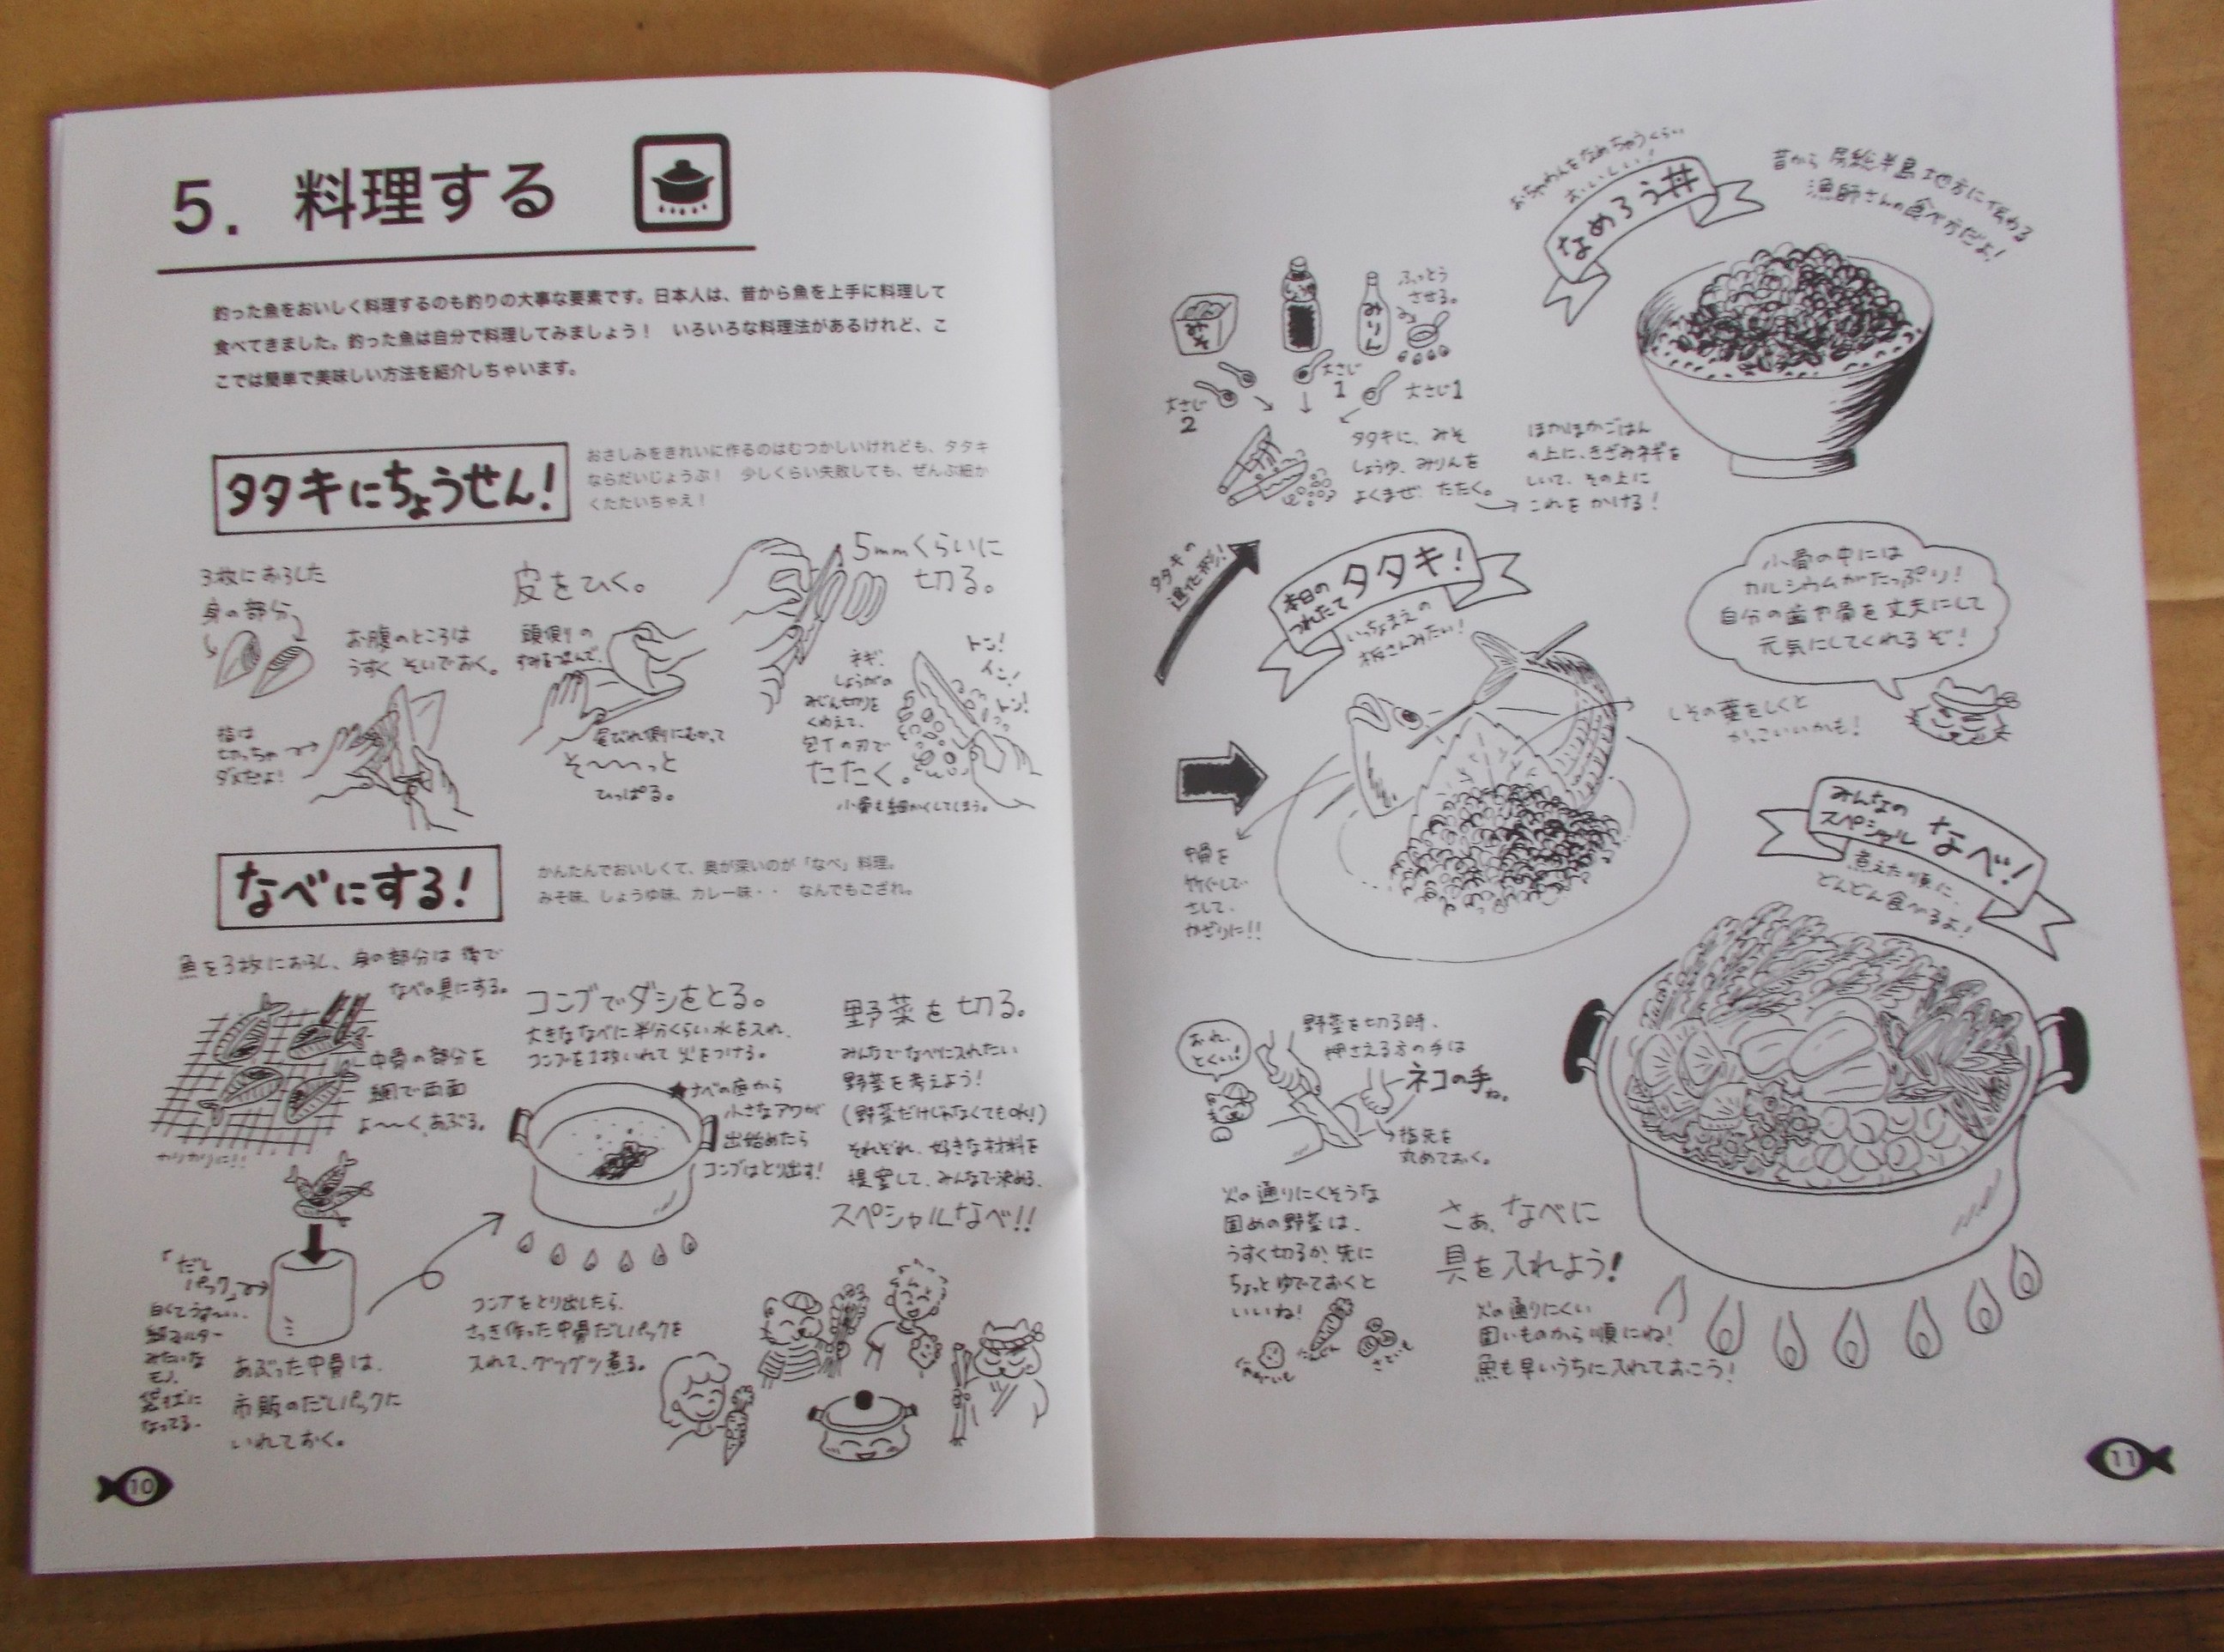 5. 料理する
釣った魚をおいしく料理するのも釣りの大事な要素です。日本人は、昔から魚を上手に料理して
食べてきました。釣った魚は自分で料理してみましょう！　いろいろな料理法があるけれど、こ
こでは簡単で美味しい方法を紹介しちゃいます。
タタキにちょうせん!
おさしみをきれいに作るのはむつかしいけれども、タタキ
ならだいじょうぶ！　少しくらい失敗しても、ぜんぶ細か
くたたいちゃえ！
3枚におろした
身の部分
お腹のところは
うすく そいでおく。
指は
切っちゃ
ダメだよ!
皮をひく。
頭側の
すみを
尾びれ側にむかって
そ〜〜っと
ひっぱる。
5mmくらいに
切る。
ネギ、
しょうがの
みじん切りを
くわえて、
包丁の刃で
たたく。
小骨も細かくしてしまう。
トン!
トン!
なべにする!
かんたんでおいしくて、奥が深いのが「なべ」料理。
みそ味、しょうゆ味、カレー味・・　なんでもござれ。
魚を3枚におろし、身の部分は後で
なべの具にする。
中骨の部分を
網で両面
よ〜〜く、あぶる。
かりかりに!!
「だし
パック」
白くてうす〜い、
みたいな
モノ。
袋状に
なってる。
あぶった中骨は、
市販のだしパックに
いれておく。
コンブでダシをとる。
大きななべに半分くらい水を入れ、
コンブを1枚いれて火をつける。
★ナベの底から
小さなアワが
出始めたら
コンブはとり出す!
コンブをとり出したら、
さっき作った中骨だしパックを
入れて、グツグツ煮る。
野菜を切る。
みんなでなべに入れたい
野菜を考えよう!
(野菜だけじゃなくてもOK!)
それぞれ、好きな材料を
提案して、みんなで決める、
スペシャルなべ!!
10
おちゃわんをなめちゃうくらい
おいしい!
なめろう丼
昔から 房総半島地方に伝わる
漁師さんの食べ方だよ!
みそ
みりん
ふっとう
させる。
大さじ
2
大さじ
1
大さじ1
タタキに、みそ
しょうゆ、みりんを
よくまぜ、たたく。
ほかほかごはん
の上に、きざみネギを
しいて、その上に
これを かける!
タタキの
進化形!
本日の
つれたて
タタキ!
いっちょまえの
板さんみたい!
小骨の中には
カルシウムがたっぷり!
自分の歯や骨を丈夫にして
元気にしてくれるぞ!
しその葉をしくと
かっこいいかも!
中骨を
竹ぐしで
さして、
かざりに!!
みんなの
スペシャル
なべ!
煮えた順に、
どんどん食べるよ!
おれ、
とくい!
野菜を切る時、
押さえる方の手は
ネコの手ね。
指先を
丸めておく。
火の通りにくそうな
固めの野菜は、
うすく切るか、先に
ちょっとゆでておくと
いいね!
じゃがいも
にんじん
さといも
さあ、なべに
具を入れよう!
火の通りにくい
固いものから順にね!
魚も早いうちに入れておこう!
11